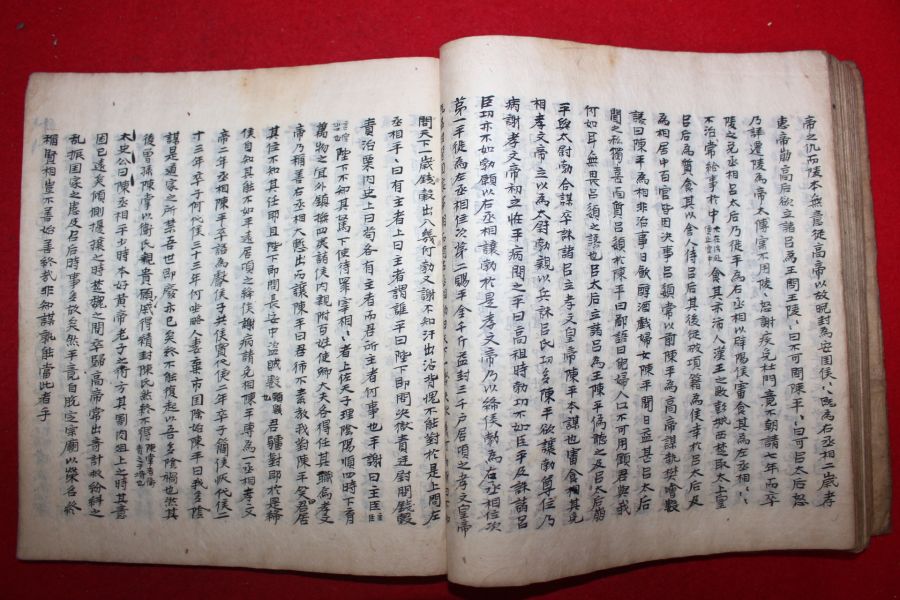 帝之仇而陵本無意從高帝以故晚封為安国侯〻既為右丞相二歲孝
惠帝崩高后欲立諸呂為王問王陵〻曰不可問陳平〻曰可呂太后怒
乃詳遷陵為帝太傅實不用陵〻怒謝疾免杜門竟不朝請七年而卒
陵之免丞相呂太后乃徙平為右丞相以辟陽侯審食其為左丞相〻〻
不治常給事於中食其亦沛人漢王之敗彭城西楚取太上皇
呂后為質食其以舍人侍呂后其後從破項籍為侯幸於呂后及
為相居中百官皆因決事呂嬃常以前陳平為高帝謀執樊噲數
讒曰陳平為相非治事日飲醇酒戲婦女陳平聞日益甚呂太后
聞之私獨喜面質呂嬃於陳平曰鄙語曰兒婦人口不可用顧君與我
何如耳〻無畏呂嬃之讒也呂太后立諸呂為王陳平偽聽之及呂太后崩
平與太尉勃合謀卒誅諸呂立孝文皇帝陳平本謀也審食其免
相孝文帝立以為太尉勃親以兵誅呂氏功多陳平欲讓勃尊位乃
病謝孝文帝初立怪平病問之平曰高祖時勃功不如臣平及誅諸呂
臣功亦不如勃願以右丞相讓勃於是孝文帝乃以絳侯勃為右丞相位次
第一平徙為左丞相位次第二賜平金千斤益封三千戶居頃之孝文皇帝
問天下一歲錢穀出入幾何勃又謝不知汗出沾背愧不能對於是上問左
丞相平〻曰有主者上曰主者謂誰平曰陛下即問決獄責廷尉問錢穀
責治粟內史上曰苟各有主者而君所主者何事也平謝曰主臣
陛下不知其駑下使待罪宰相〻〻者上佐天子理陰陽順四時下育
萬物之宜外鎮撫四夷諸侯內親附百姓使卿大夫各得任其職焉孝文
帝乃稱善右丞相大慙出而讓陳平曰君獨不素教我對陳平笑曰君居
其位不知其任耶且陛下即問長安中盜賊數君欲彊對耶於是絳
侯自知其能不如平遠矣居頃之絳侯謝病請免相陳平專為一丞相孝文
帝二年丞相陳平卒諡為獻侯子共侯買代侯二年卒子簡侯恢代侯二
十三年卒子何代侯二十三年何坐略人妻棄市國除始陳平曰我多陰
謀是道家之所禁吾世即廢亦已矣終不能復起以吾多陰禍也然其
後曾孫陳掌以衛氏親貴願得續封陳氏然終不得
太史公曰陳丞相平少時本好黃帝老子之術方其割肉俎上之時其意
固已遠矣傾側擾攘之時楚魏之間卒歸高帝常出奇計救紛糾之
乱振国家之患及呂后時事多故矣然平竟自脫定宗廟以榮名終
稱賢相豈不善始善終哉非知謀孰能當此者乎